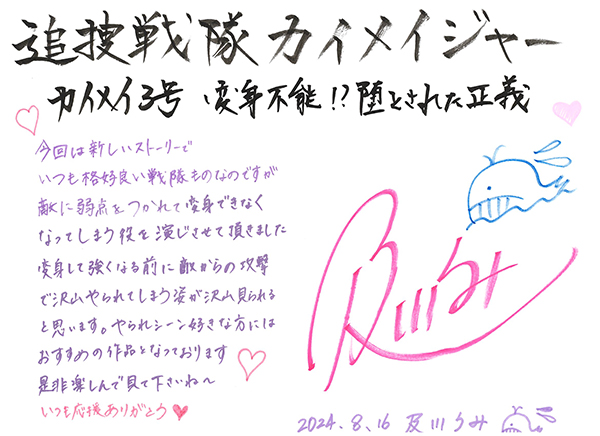 追捜戦隊カイメイジャー
カイメイ3号 変身不能!?堕とされた正義
今回は新しいストーリーで
いつも格好良い戦隊ものなのですが
敵に弱点をつかれて変身できなく
なってしまう役を演じさせて頂きました
変身して強くなる前に敵からの攻撃
で沢山やられてしまう姿が沢山見られる
と思います。やられシーン好きな方には
おすすめの作品となっております
是非楽しんで見て下さいね〜
いつも応援ありがとう
及川うみ
2024.8.16 及川うみ